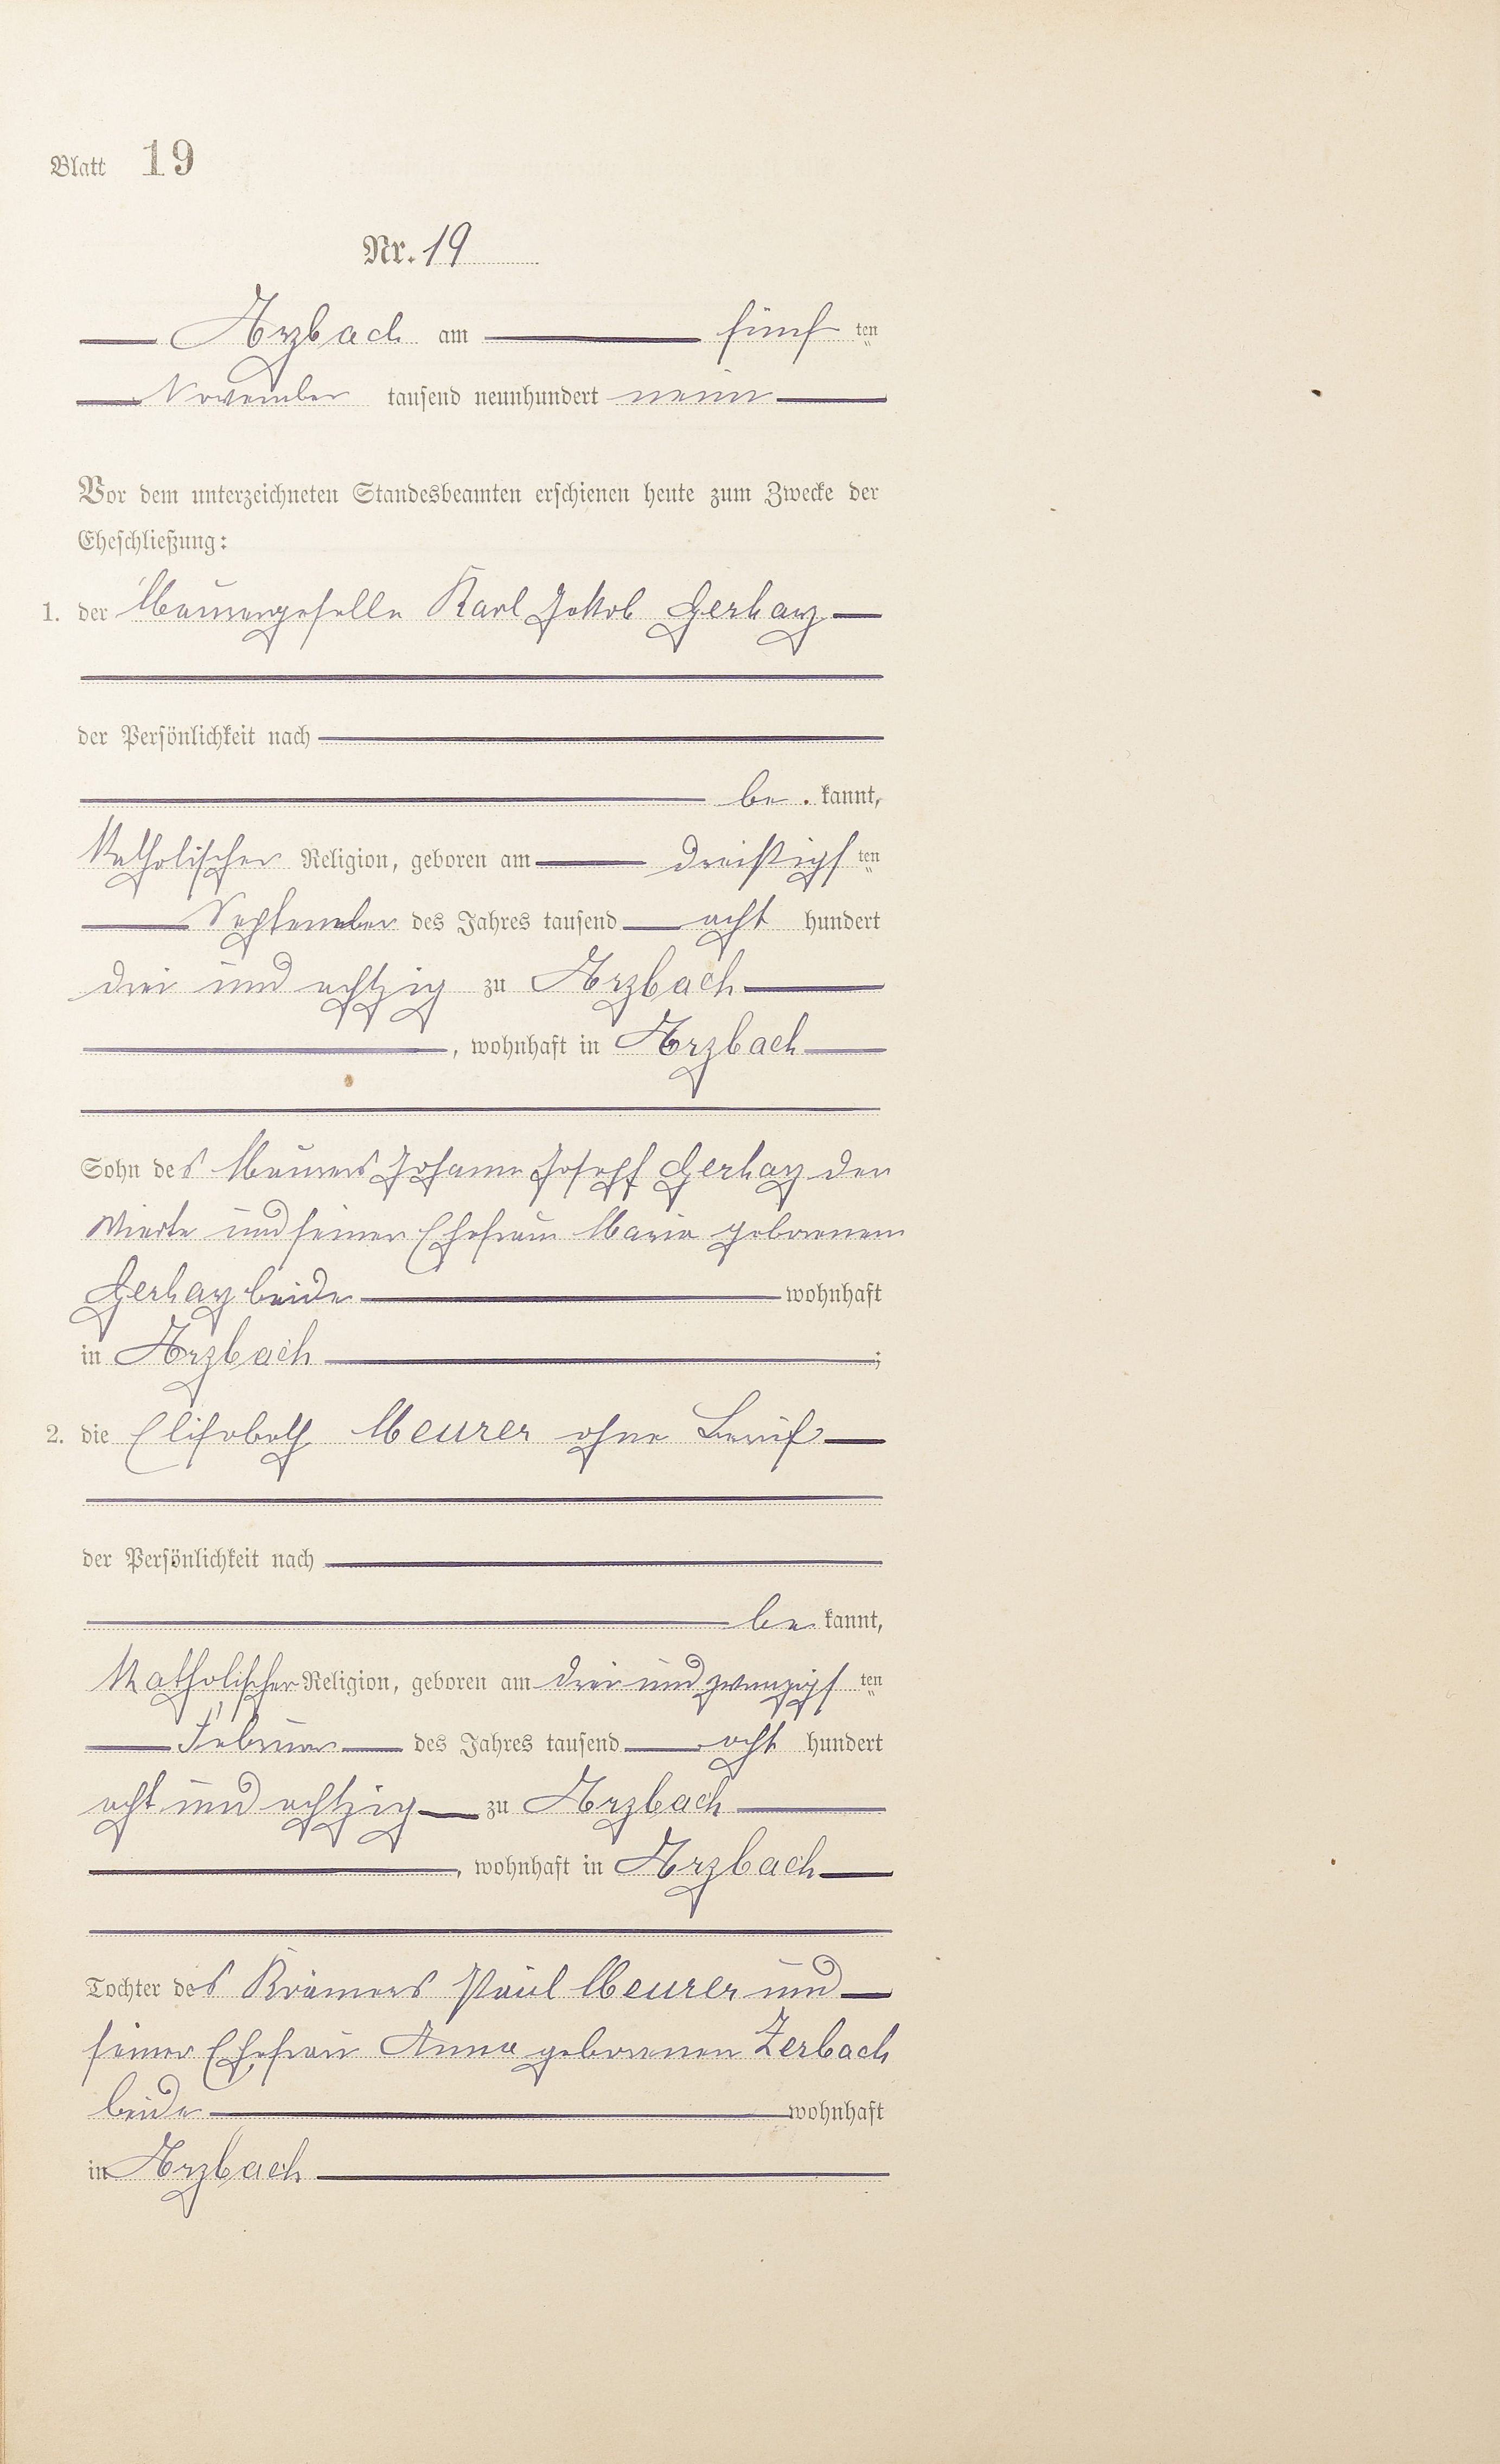 Blatt 19
Nr. 19
Arzbach am fünf ten
November tausend neunhundert neun
Vor dem unterzeichneten Standesbeamten erschienen heute zum Zwecke der
Eheschließung:
1. der Maurergeselle Karl Jakob Gerharz
der Persönlichkeit nach
be kannt,
katholischer Religion, geboren am dreißigs ten
September des Jahres tausend acht hundert
drei und achtzig zu Arzbach
, wohnhaft in Arzbach
Sohn des Maurers Johann Joseph Gerharz der
Vierte und seiner Ehefrau Maria geborenen
Gerharz beide wohnhaft
in Arzbach ;
2. die Elisabeth Meurer ohne Beruf
der Persönlichkeit nach
be kannt,
katholischer Religion, geboren am drei und zwanzigs ten
Februar des Jahres tausend acht hundert
acht und achtzig zu Arzbach
, wohnhaft in Arzbach
Tochter des Krämers Paul Meurer und
seiner Ehefrau Anna geborenen Zerbach
beide wohnhaft
in Arzbach